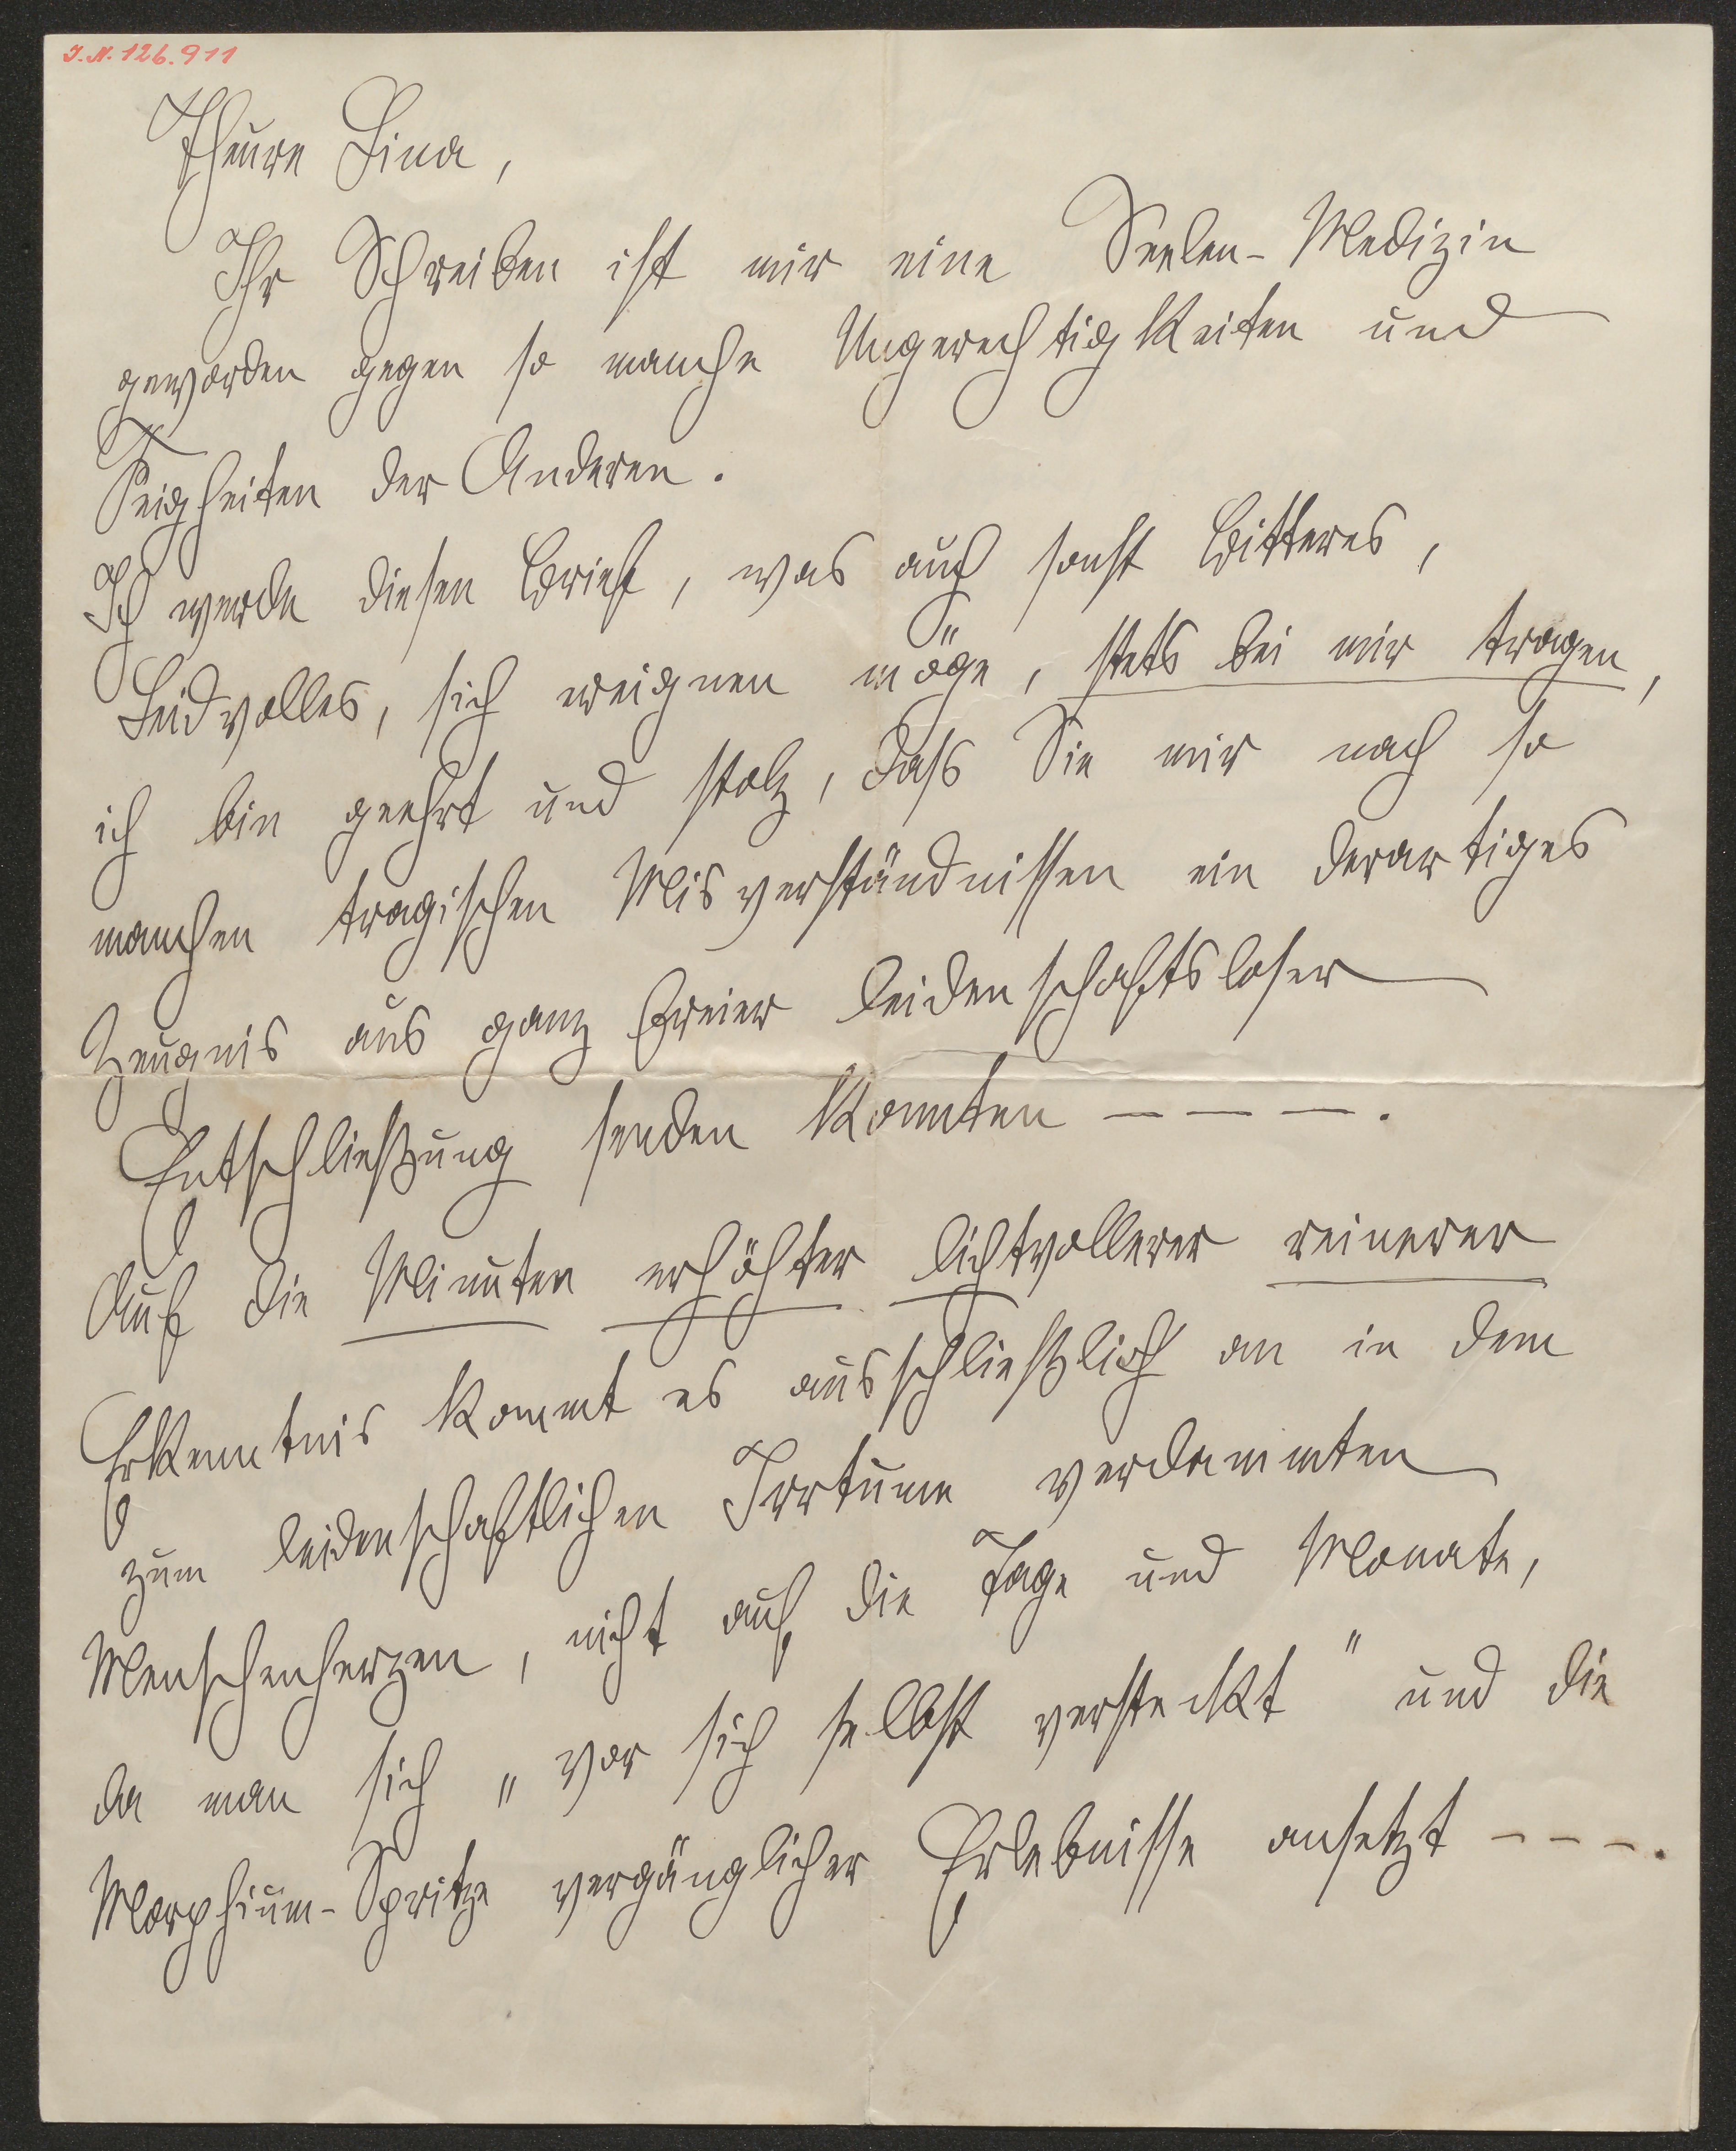 I.N. 126.911
Theure Lina,
Ihr Schreiben ist mir eine Seelen-Medizin
geworden gegen so manche Ungerechtigkeiten und
Feigheiten der Anderen.
Ich werde diesen Brief, was auch sonst Bitteres,
Leidvolles, sich ereignen möge, stets bei mir tragen,
ich bin geehrt und stolz, dass Sie mir nach so
manchen tragischen Misverständnissen ein derartiges
Zeugnis aus ganz freier leidenschaftsloser
Entschließung senden konnten – – – .
Auf die Minuten erhöhter lichtvollerer reinerer
Erkenntnis kommt es ausschließlich an in dem
zum leidenschaftlichen Irrtume verdammten
Menschenherzen, nicht auf die Tage und Monate,
da man sich „vor sich selbst versteckt" und die
Morphium-Spritze vergänglicher Erlebnisse ansetzt – – – .